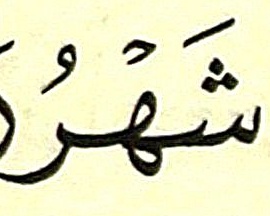 شَهْرُ